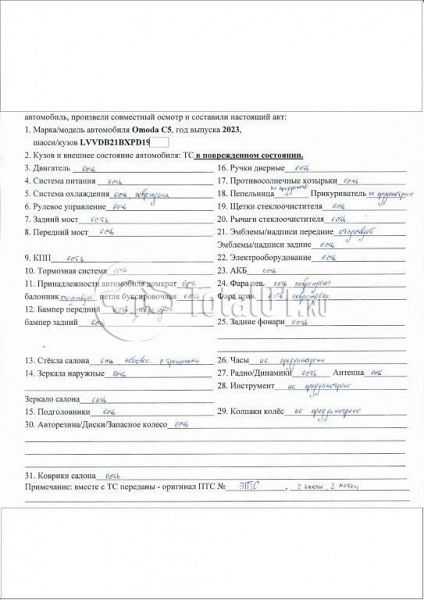 автомобиль, произвели совместный осмотр и составили настоящий акт:
1. Марка/модель автомобиля Omoda C5, год выпуска 2023,
шасси/кузов LVVDB21BXPD19
2. Кузов и внешнее состояние автомобиля: ТС в поврежденном состоянии.
3. Двигатель есть
4. Система питания есть
5. Система охлаждения есть
6. Рулевое управление есть
7. Задний мост есть
8. Передний мост есть
9. КПП есть
10. Тормозная система есть
11. Принадлежности автомобиля домкрат есть
балонник петля буксировочная есть
12. Бампер передний есть
бампер задний есть
13. Стёкла салона есть
14. Зеркала наружные есть
Зеркало салона есть
15. Подголовники есть
16. Ручки дверные есть
17. Противосолнечные козырьки есть
18. Пепельница Прикуриватель не предусмотрено
19. Щетки стеклоочистителя есть
20. Рычаги стеклоочистителя есть
21. Эмблемы/надписи передние
Эмблемы/надписи задние есть
22. Электрооборудование есть
23. АКБ есть
24. Фара лев. есть повреждена
Фара прав. есть повреждена
25. Задние фонари есть
26. Часы не предусмотрены
27. Радио/Динамики есть Антенна есть
28. Инструмент не предусмотрено
29. Колпаки колёс не предусмотрено
30. Авторезина/Диски/Запасное колесо есть
31. Коврики салона есть
Примечание: вместе с ТС переданы - оригинал ПТС № ЭПТС , 2 ключа,
Total01.ru